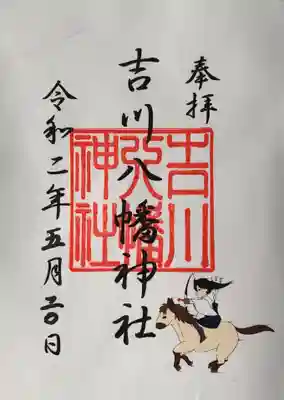 奉拝
吉川八幡神社
吉川
八幡
神社
令和二年五月二十日